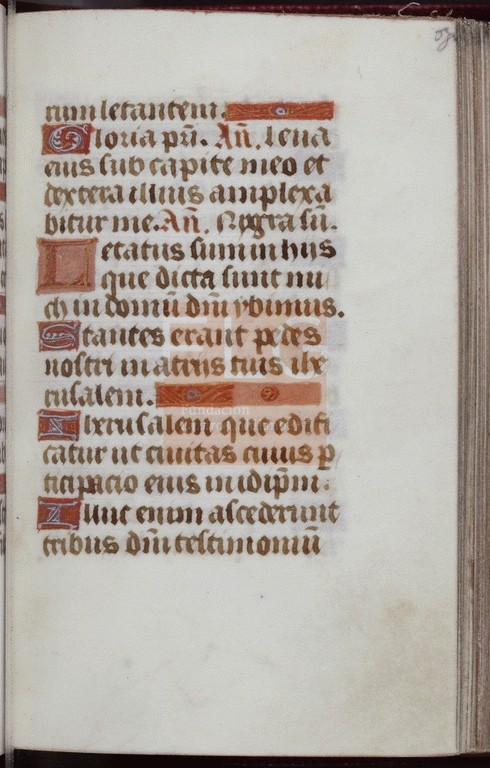 rum letantem.
Gloria pri. An. Leua
eius sub capite meo et
dextera illius amplexa
bitur me. An. Nygra su.
Letatus sum in hijs
que dicta sunt mi
ch in domu dni ybimus.
Stantes erant pedes
nostri in atrijs tuis ihe
rusalem.
Fundación
Iherusalem que edifi
catur ut ciuitas cuius p
ticipacio eius in idipm.
Illuc enim ascederunt
tribus dni testimoniu